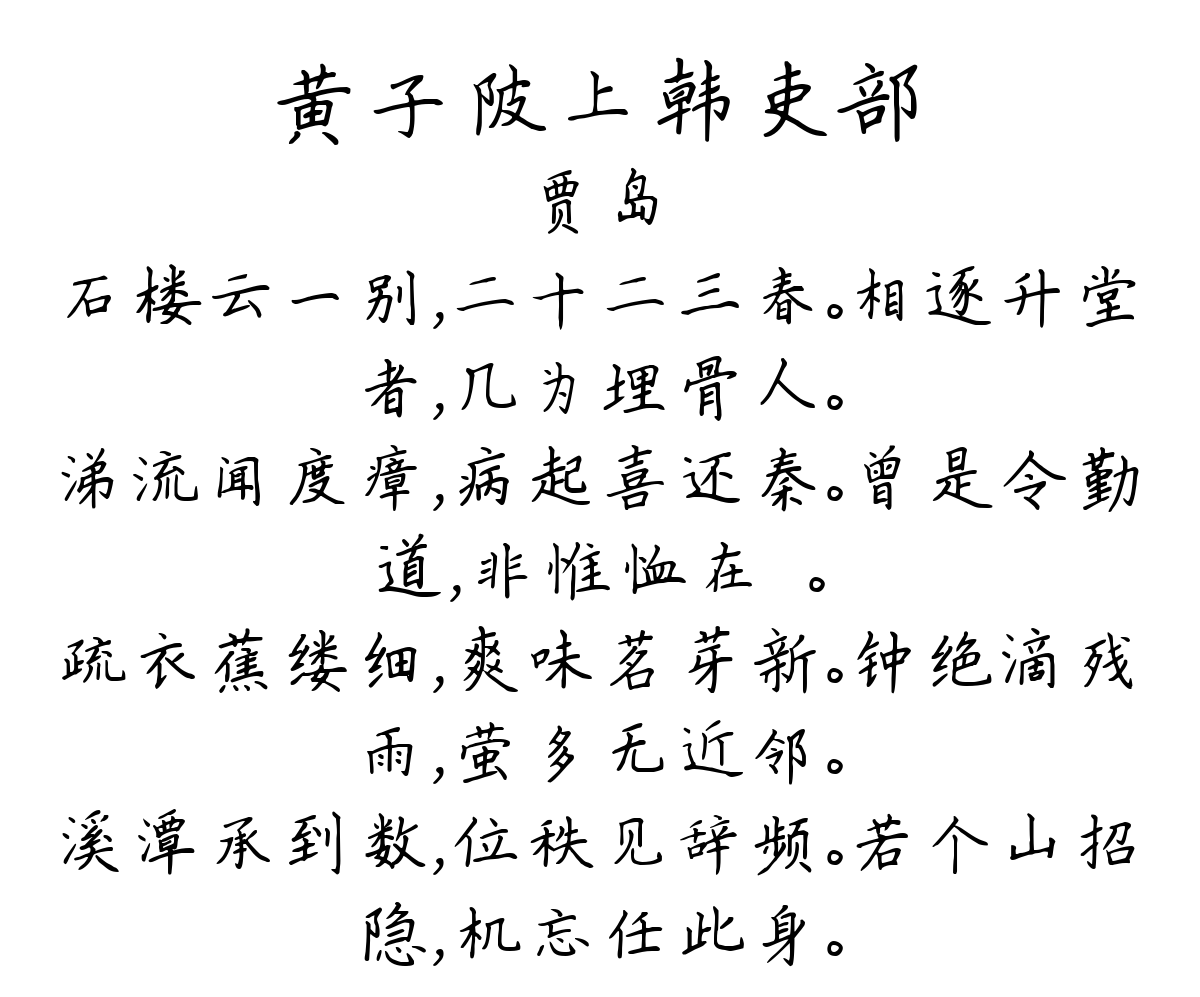 黄子陂上韩吏部
贾岛
石楼云一别,二十二三春。相逐升堂
者,几为埋骨人。
涕流闻度瘴,病起喜还秦。曾是令勤
道,非惟恤在 。
疏衣蕉缕细,爽味茗芽新。钟绝滴残
雨,萤多无近邻。
溪潭承到数,位秩见辞频。若个山招
隐,机忘任此身。